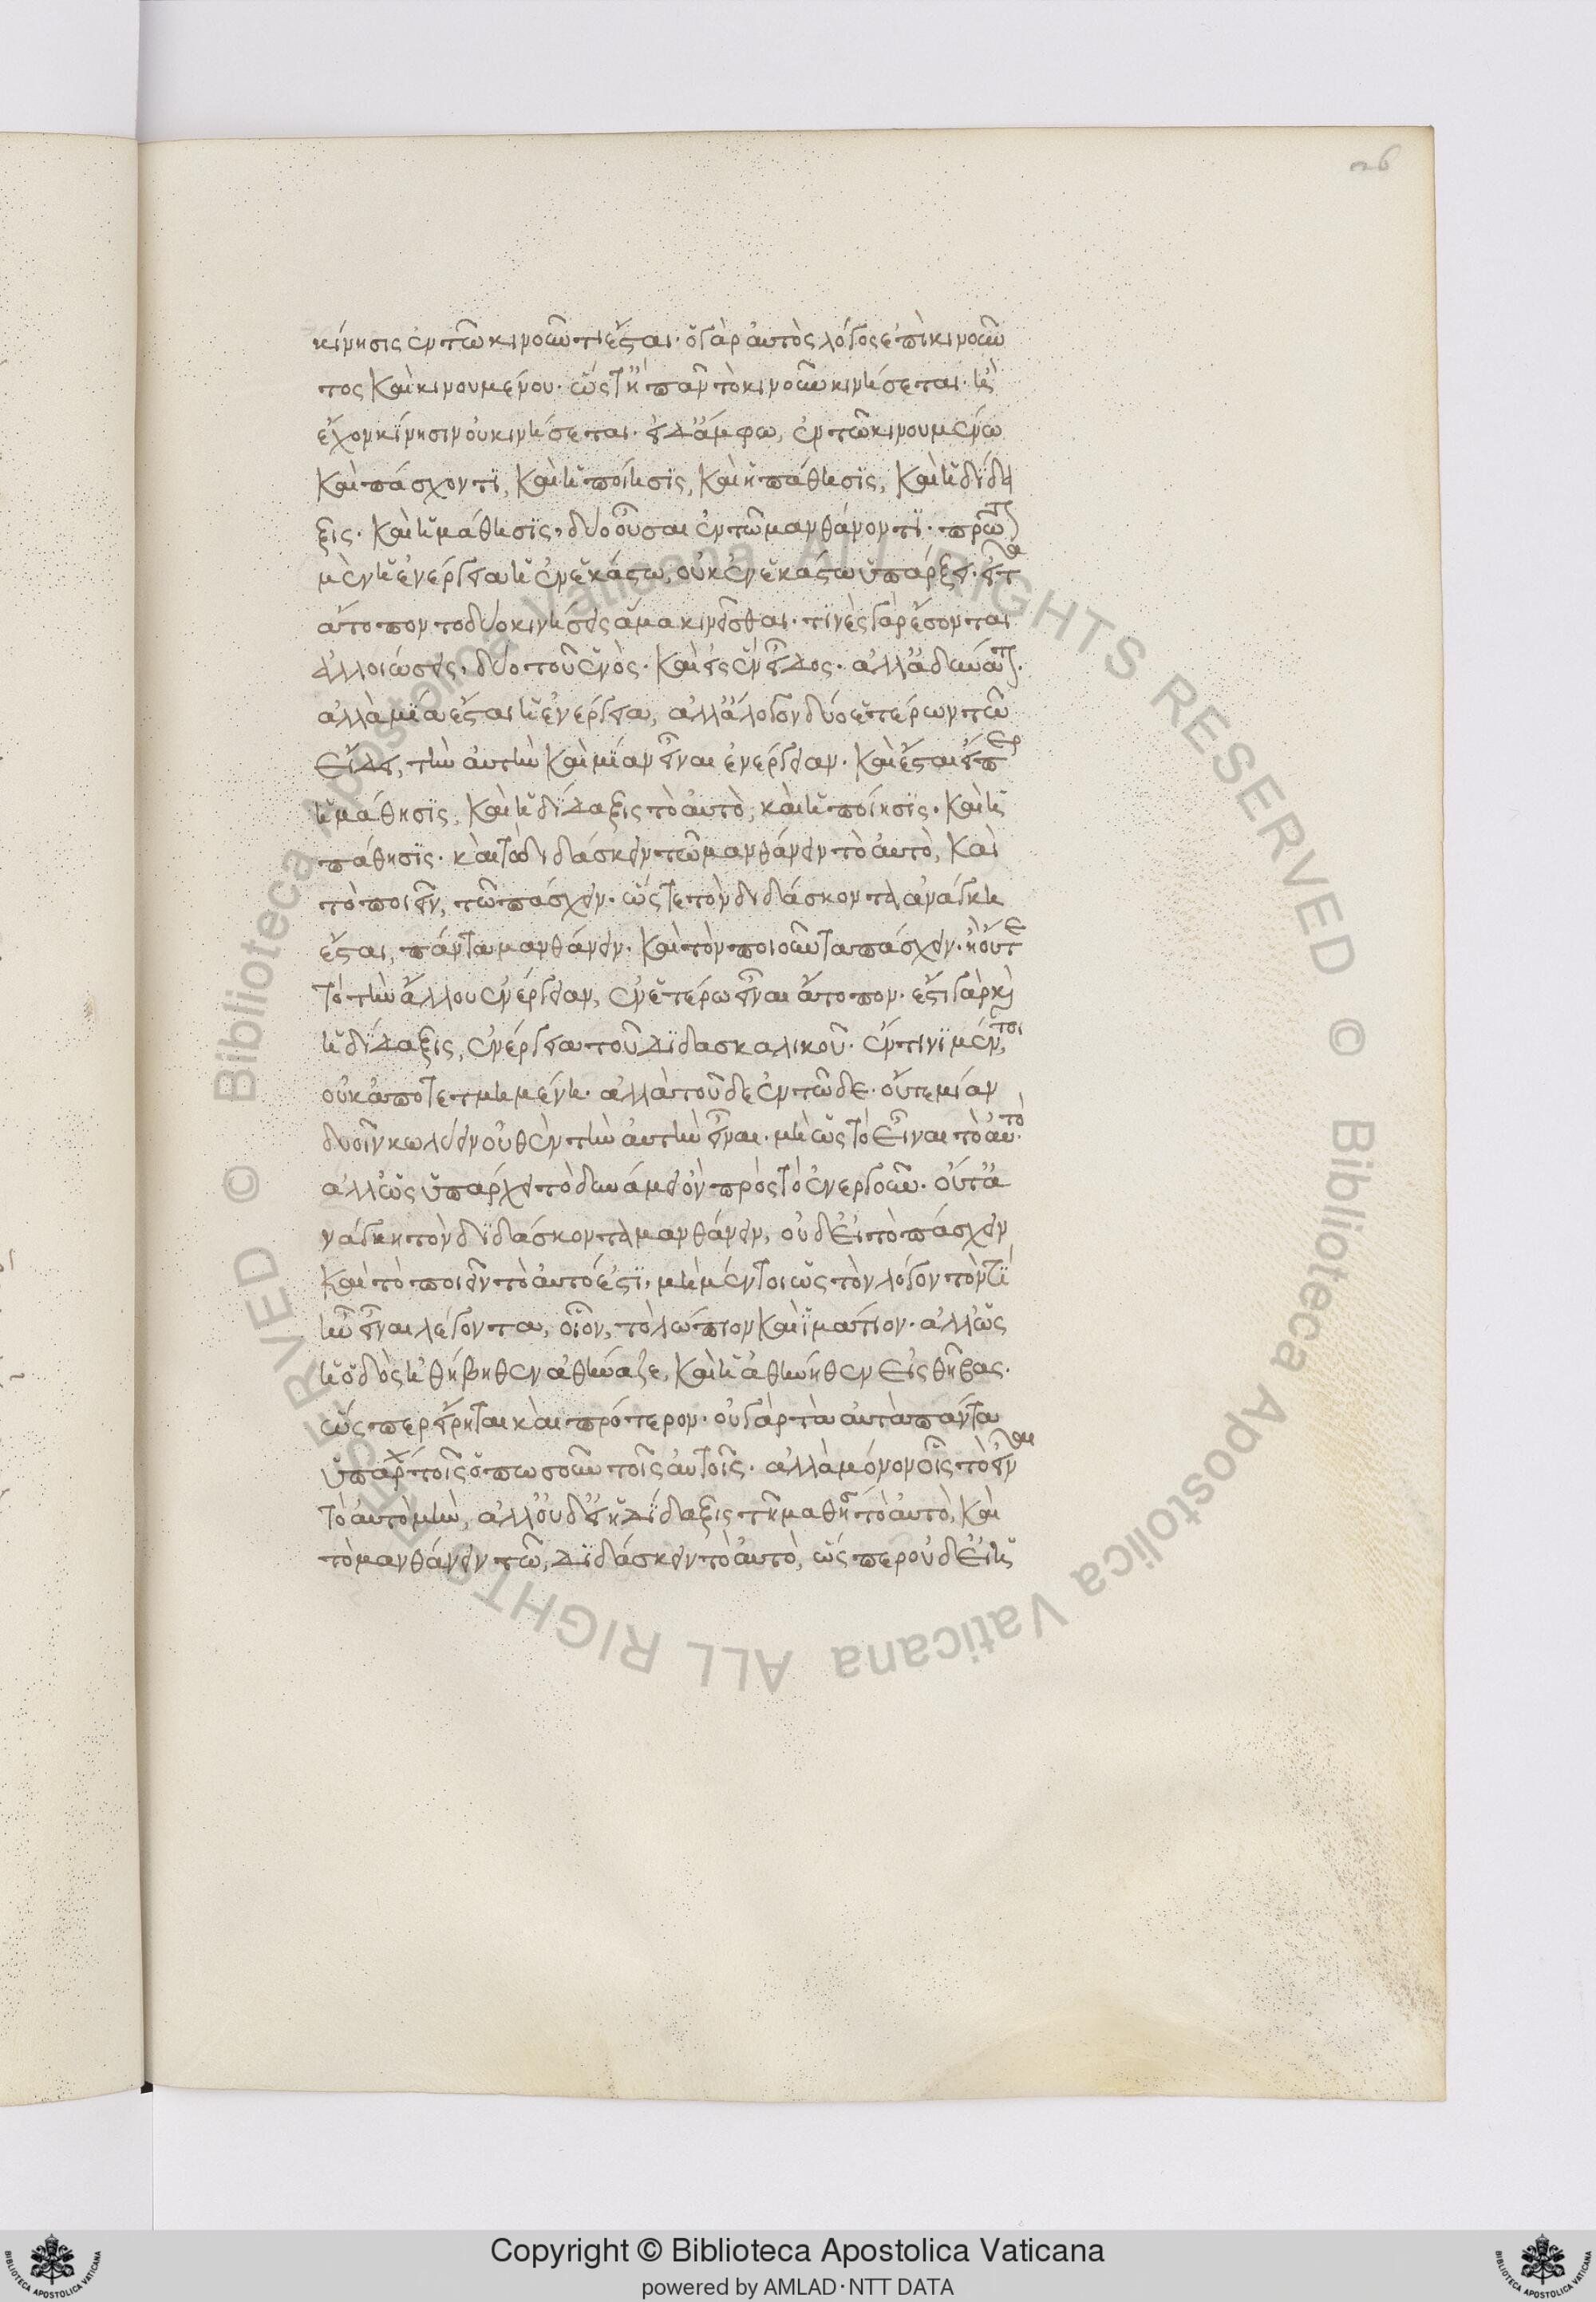 26
κίνησις ἐν τῶ κινοῦντι ἔσται· ὁ γὰρ αὐτὸς λόγος ἐπὶ κινοῦν
τος καὶ κινουμένου· ὥστ' ἢ πᾶν τὸ κινοῦν κινήσεται· ἢ
ἔχον κίνησιν οὐ κινήσεται· εἰ δ' ἄμφω, ἐν τῶ κινουμένω
καὶ πάσχοντι, καὶ ἡ ποίησις, καὶ ἡ πάθησις, καὶ ἡ δίδα
ξις· καὶ ἡ μάθησις, δύο οὖσαι ἐν τῶ μανθάνοντι· πρῶτ
μὲν ἡ ἐνέργεια ἡ ἐν ἑκάστω, οὐκ ἐν ἑκάστω ὑπάρξει· εἶτα
ἄτοπον τὸ δύο κινήσεις ἅμα κινεῖσθαι· τίνες γὰρ ἔσονται
ἀλλοιώσεις, δύο τοῦ ἑνὸς· καὶ εἰς ἓν εἶδος· ἀλλ' ἀδύνατ·
ἀλλὰ μία ἔσται ἡ ἐνέργεια, ἀλλ' ἄλογον δύο ἑτέρων τῶ
εἴδει, τὴν αὐτὴν καὶ μίαν εἶναι ἐνέργειαν· καὶ ἔσται εἴπερ
ἡ μάθησις, καὶ ἡ δίδαξις τὸ αὐτὸ, καὶ ἡ ποίησις· καὶ ἡ
πάθησις· καὶ τὸ διδάσκειν τῶ μανθάνειν τὸ αὐτὸ, καὶ
τὸ ποιεῖν, τῶ πάσχειν· ὥστε τὸν διδάσκοντα ἀνάγκη
ἔσται, πάντα μανθάνειν· καὶ τὸν ποιοῦντα πάσχειν· ἢ οὔτε
τὸ τὴν ἄλλου ἐνέργειαν, ἐν ἑτέρω εἶναι ἄτοπον· ἔστι γὰρ καὶ
ἡ δίδαξις, ἐνέργεια τοῦ διδασκαλικοῦ· ἔν τινι μέντοι
οὐκ ἀποτετμημένη· ἀλλὰ τοῦδε ἐν τῶδε· οὔτε μίαν
δυοῖν κωλύειν οὐθὲν τὴν αὐτὴν εἶναι· μὴ ὡς τὸ εἶναι τὸ αὐτὸ·
ἀλλ' ὡς ὑπάρχει τὸ δυνάμει ὂν πρὸς τὸ ἐνεργοῦν· οὔτ' ἀ
νάγκη τὸν διδάσκοντα μανθάνειν, οὐδ' εἰ τὸ πάσχειν
καὶ τὸ ποιεῖν τὸ αὐτό ἐστι, μὴ μέντοι ὡς τὸν λόγον τὸν τί
ἦν εἶναι λέγοντα, οἷον, τὸ λώπιον καὶ ἱμάτιον· ἀλλ' ὡς
ἡ ὁδὸς ἡ θήβηθεν ἀθήναζε, καὶ ἡ ἀθήνηθεν εἰς θήβας·
ὥσπερ εἴρηται καὶ πρότερον· οὐ γὰρ τὰ αὐτὰ πάντα
ὑπάρχ τοῖς ὁπωσοῦν τοῖς αὐτοῖς· ἀλλὰ μόνον οἷς τὸ εἶναι
τὸ αὐτὸ μὴν, ἀλλ' οὐδ' εἰ ἡ δίδαξις τῆ μαθήσει τὸ αὐτὸ, καὶ
τὸ μανθάνειν τῶ, διδάσκειν τὸ αὐτὸ, ὥσπερ οὐδ' εἰ ἡ
© Biblioteca Apostolica Vaticana ALL RIGHTS RESERVED © Biblioteca Apostolica Vaticana ALL RIGHTS RESERVED
Copyright © Biblioteca Apostolica Vaticana
powered by AMLAD·NTT DATA